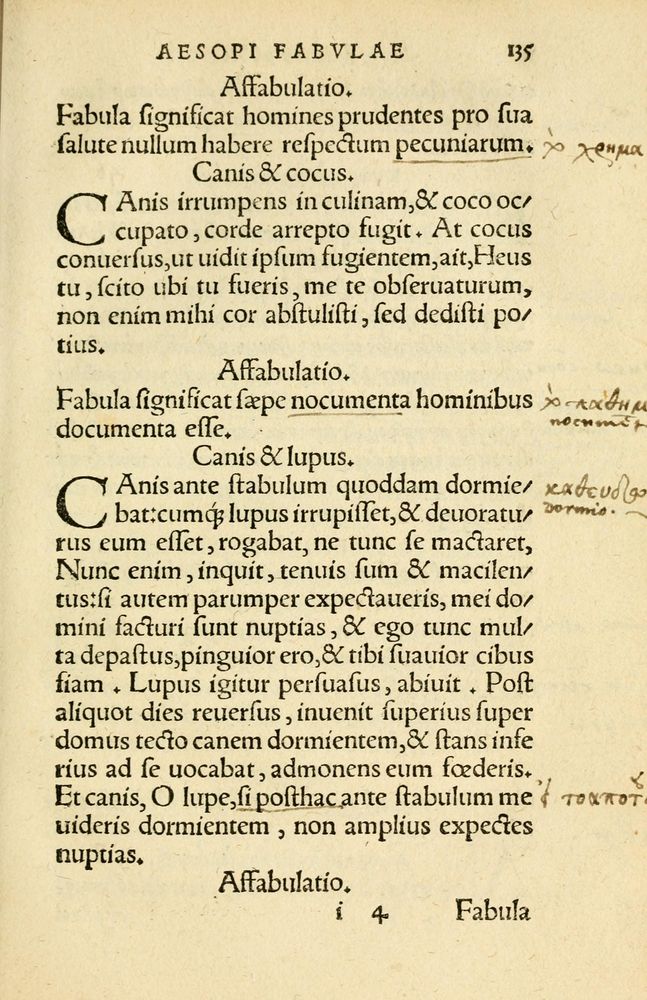 AESOPI FABVLAE 135
Affabulatio.
Fabula ſignificat homines prudentes pro ſua
ſalute nullum habere reſpectum pecuniarum. χρημα
Canis & cocus.
CAnis irrumpens in culinam, & coco oc/
cupato, corde arrepto fugit. At cocus
conuerſus, ut uidit ipſum fugientem, ait, Heus
tu, ſcito ubi tu fueris, me te obſeruaturum,
non enim mihi cor abſtuliſti, ſed dediſti po/
tius.
Affabulatio.
Fabula ſignificat ſæpe nocumenta hominibus
documenta eſſe.
Canis & lupus.
CAnis ante ſtabulum quoddam dormie/
bat: cumq́; lupus irrupiſſet, & deuoratu/ dormio.
rus eum eſſet, rogabat, ne tunc ſe mactaret,
Nunc enim, inquit, tenuis ſum & macilen/
tus: ſi autem parumper expectaueris, mei do/
mini facturi ſunt nuptias, & ego tunc mul/
ta depaſtus, pinguior ero, & tibi ſuauior cibus
fiam. Lupus igitur perſuaſus, abiuit. Poſt
aliquot dies reuerſus, inuenit ſuperius ſuper
domus tecto canem dormientem, & ſtans infe
rius ad ſe uocabat, admonens eum fœderis.
Et canis, O lupe, ſi poſthac ante ſtabulum me τοαποτ
uideris dormientem, non amplius expectes
nuptias.
Affabulatio.
i 4 Fabula